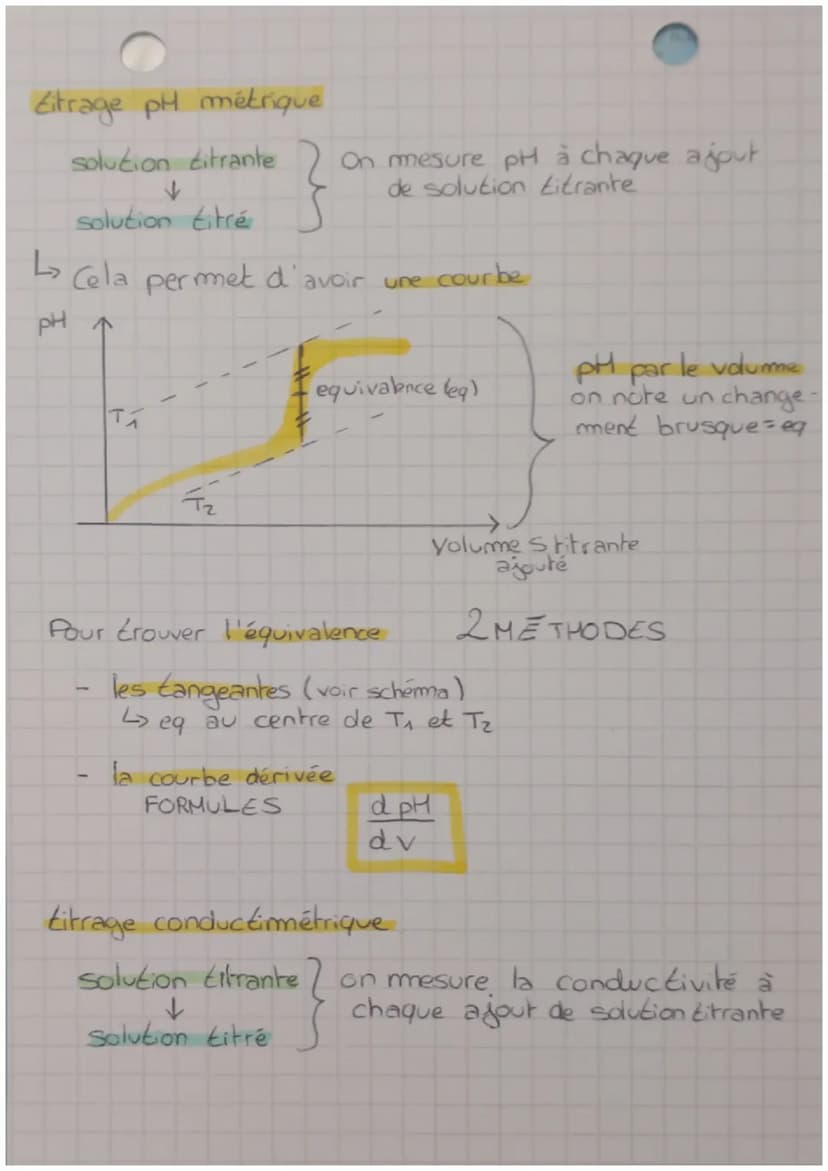 titrage pH métrique
solution titrante
↓
solution titré
On mesure pH à chaque ajout
de solution titrante
↳ Cela permet d'avoir une courbe
pH
T1
equivalence (eq)
T2
Volume S titrante
ajouté
pH par le volume
on note un change-
ment brusque = eq
Pour trouver l'équivalence 2 MÉTHODES
- les tangeantes (voir schéma)
↳ eq au centre de T1 et T2
- la courbe dérivée
FORMULES
d pH
d v
titrage conductimétrique
solution titrante
↓
solution titré
on mesure la conductivité à
chaque ajout de solution titrante